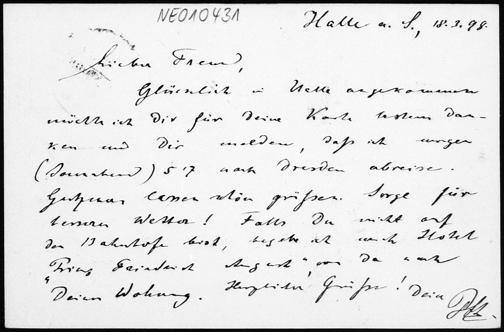 NE010431
Halle a. S., 18.3.98.
Lieber Freund,
Glücklich in Halle angekommen
möchte ich Dir für Deine Karte bestens dan-
ken und Dir melden, daß ich morgen
(Sonnabend) 5 17 nach Dresden abreise.
lassen schön grüßen. Sorge für
besseres Wetter! Falls Du nicht auf
dem Bahnhofe bist, begebe ich mich Hotel
"Prinz Friedrich August", von da nach
Deiner Wohnung. Herzliche Grüße! Dein